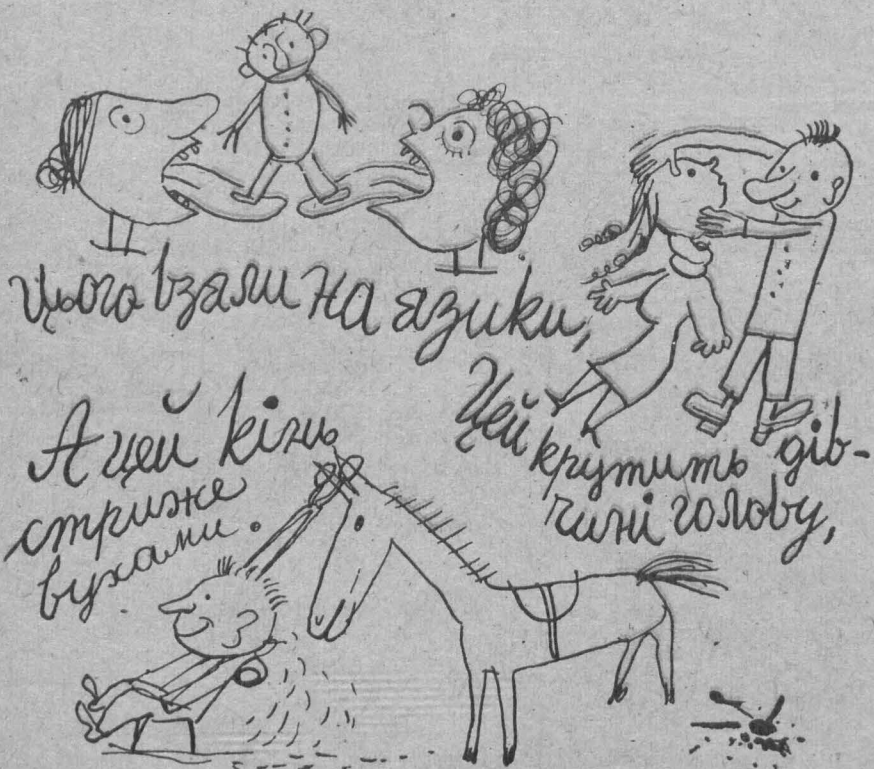 Цього взяли на язики,
Цей крутить дів-
чині голову,
А цей кінь
стриже
вухами.